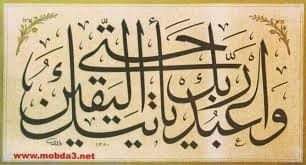 واعبد ربك حتى يأتيك اليقين
www.mobda3.net